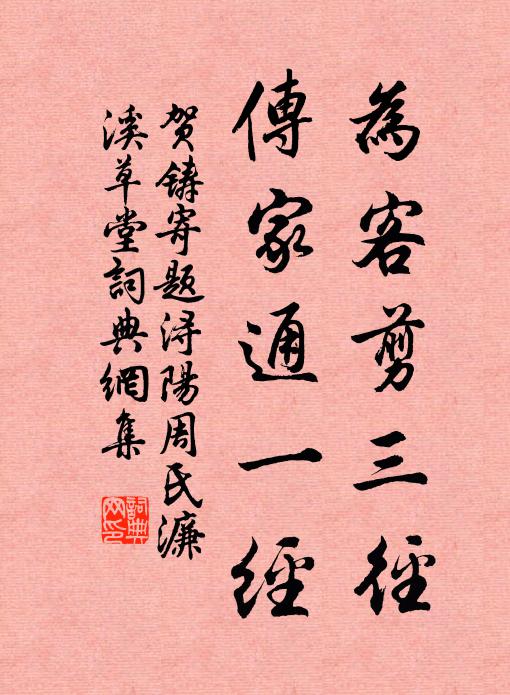 為客剪三徑
傳家通一經
賀鑄寄題潯陽周氏濂
溪草堂詞典網集
詞典网印